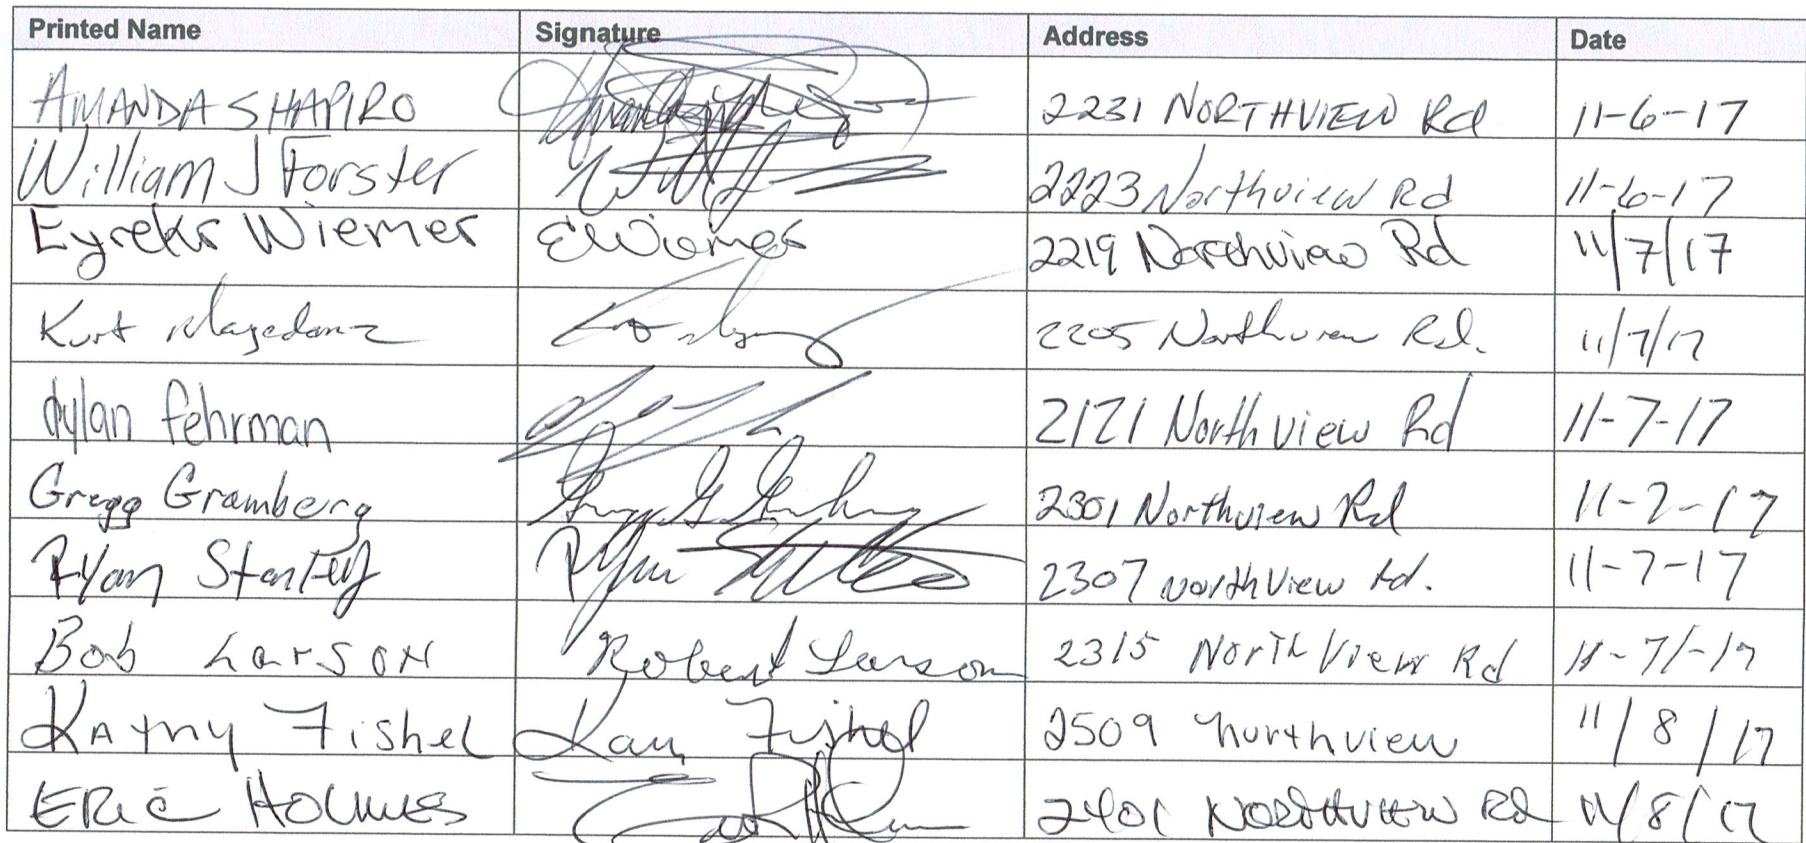 Printed Name Signature Address Date
AMANDA SHAPIRO 2231 NORTHVIEW Rd 11-6-17
William J Forster 2223 Northview Rd 11-6-17
Eyreks Wiemer EWiemer 2219 Northview Rd 11/7/17
Kurt Magedanz 2205 Northview Rd. 11/7/17
dylan fehrman 2121 Northview Rd 11-7-17
Gregg Gramberg 2301 Northview Rd 11-7-17
Ryan Stanley Ryan 2307 northview rd. 11-7-17
Bob Larson Robert Larson 2315 North View Rd 11-7-17
KAthy Fishel Fishel 2509 northview 11/8/17
ERic HOLMES 2401 NORTHVIEW Rd 11/8/17